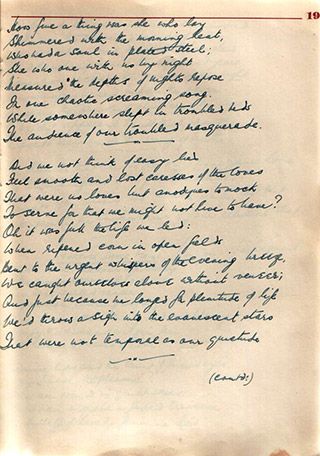 19
How fine a thing was she who lay
Shimmered with the morning heat,
Who had a soul in plated steel;
She who one with us by night
Measured the depths of night's repose
In one chaotic screaming song.
While somewhere slept in troubled beds
The audience of our troubled masquerade.
And we not think of easy lies
Feel smooth and lost caresses of the loves
That were no loves but anodynes to mock
To serve for that we might not live to have?
Oh it was full the life we led:
When ripened corn in open fields
Bent to the urgent whispers of the evening breeze,
We caught ourselves alone without
And just because we longed for plenitude of life
We'd throw a sigh into the evanescent stars
That were not temporal as our
(contd:)